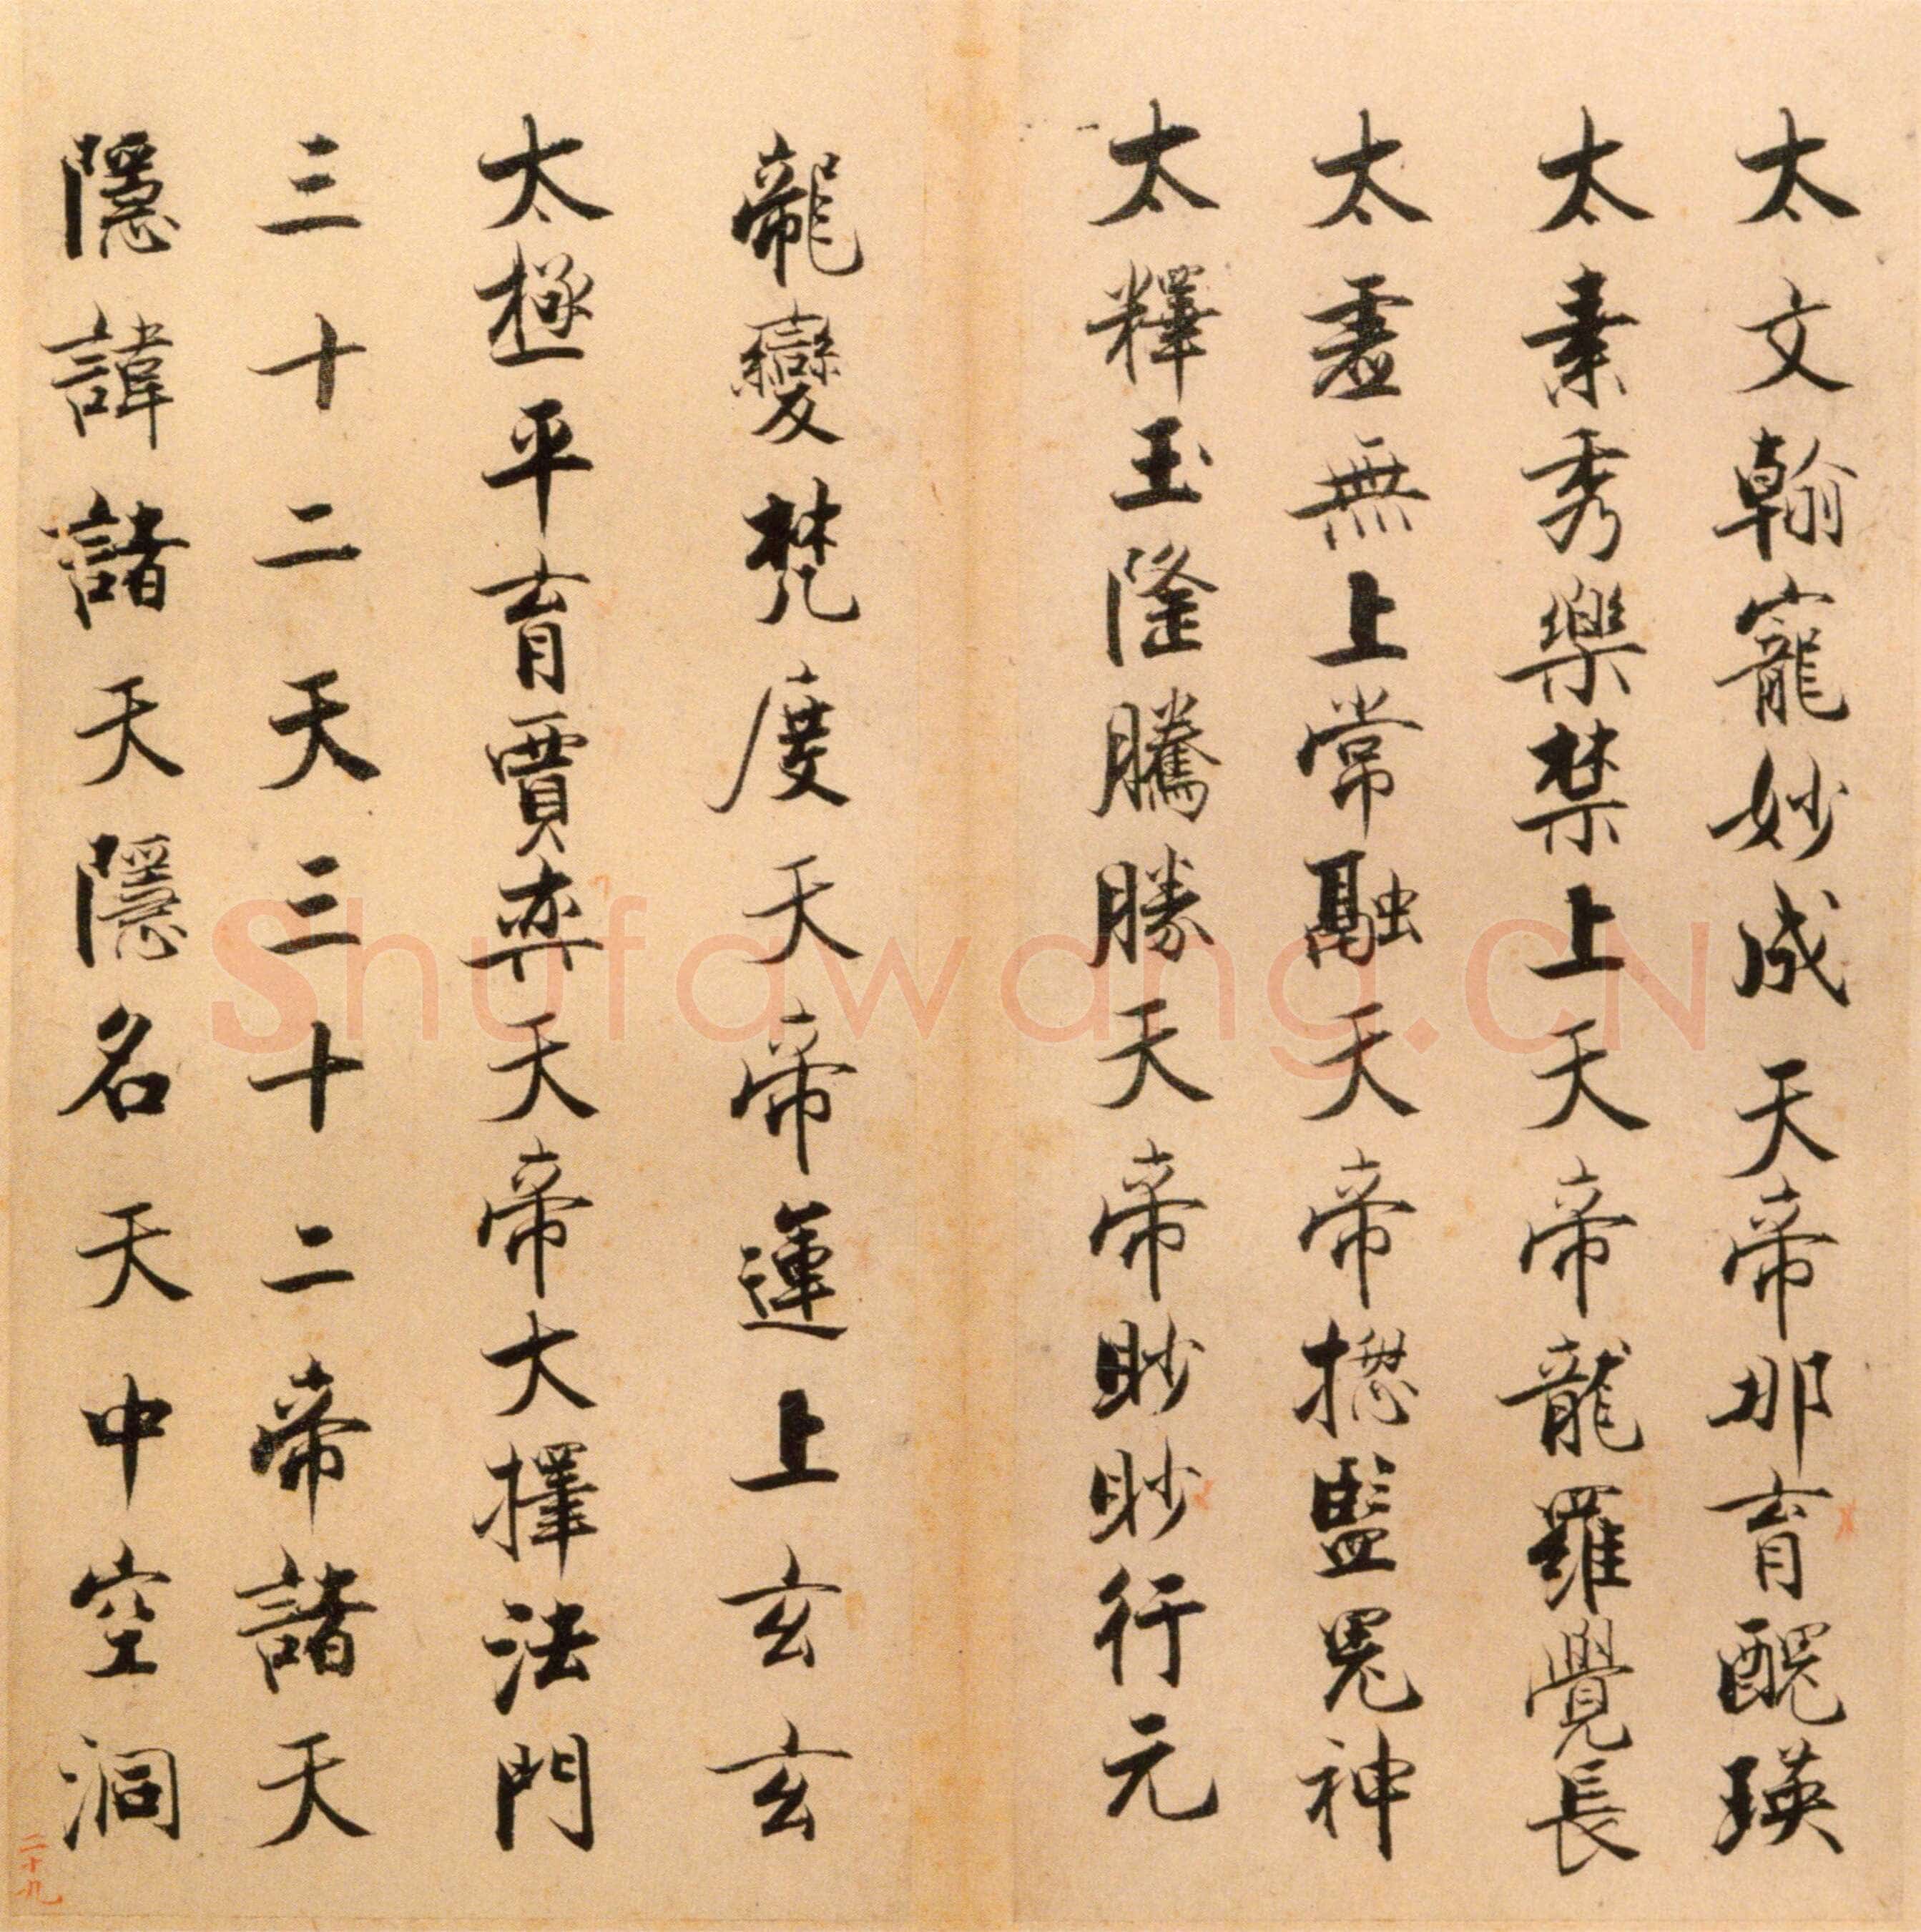 太文翰寵妙成天帝那育醌瑛
太素秀樂禁上天帝龍羅覺長
太虛無上常融天帝揔監鬼神
太釋玉隆騰勝天帝眇眇行元
龍變梵度天帝運上玄玄
太極平育賈奕天帝大擇法門
三十二天三十二帝諸天
隱諱諸天隱名天中空洞
二十九
Shufawang.CN